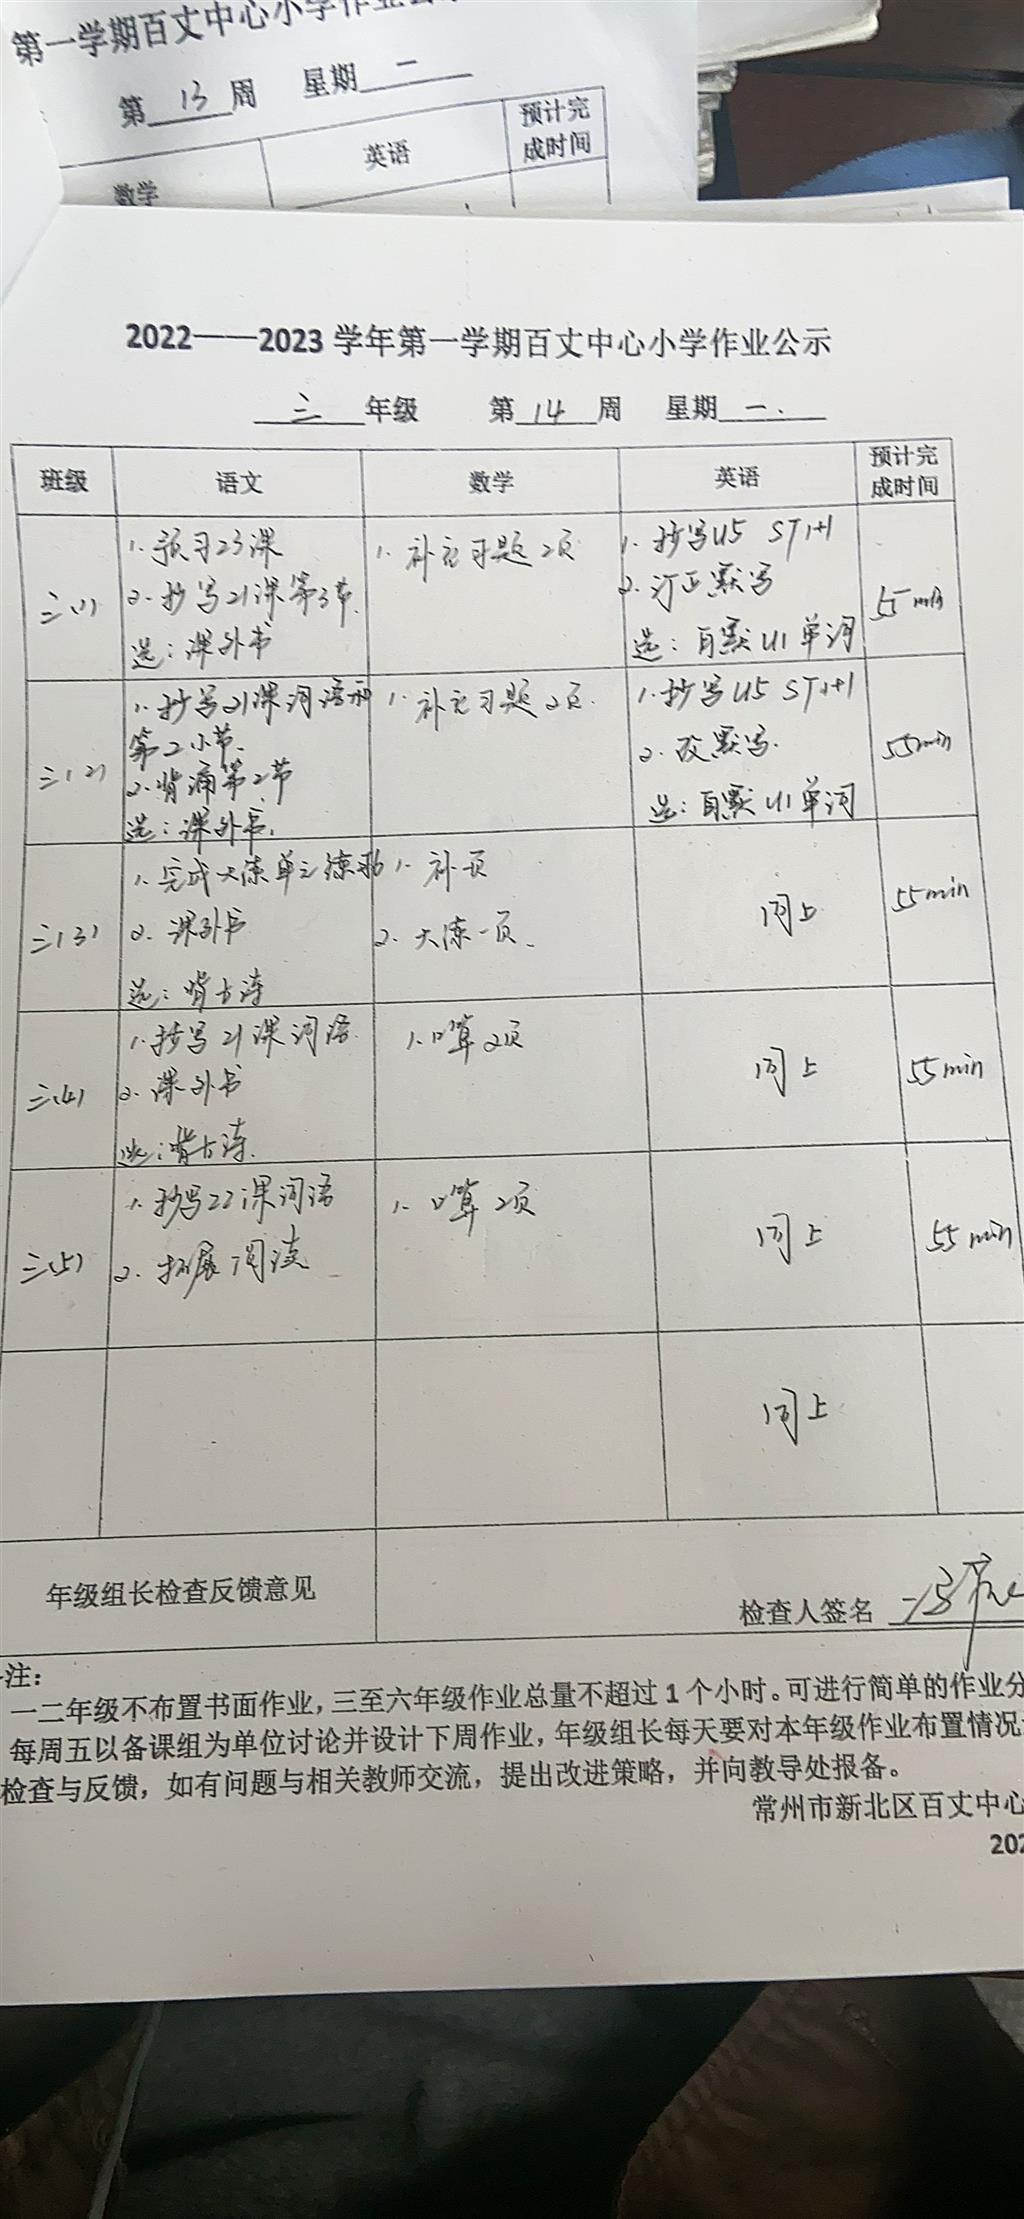 第一学期百丈中心小学作业公示
第 13 周 星期 二
数学 英语 预计完成时间
2022——2023 学年第一学期百丈中心小学作业公示
三 年级 第 14 周 星期 一.
班级 语文 数学 英语 预计完成时间
三(1)
1. 预习23课
2. 抄写21课第3节.
选：课外书
1. 补充习题2页
1. 抄写U5 ST1+1
2. 订正默写
选：自默U1单词
55min
三(2)
1. 抄写21课词语和
第2小节.
2. 背诵第2节
选：课外书.
1. 补充习题2页.
1. 抄写U5 ST1+1
2. 改默写.
选：自默U1单词
55min
三(3)
1. 完成大练单元练习
2. 课外书
选：背古诗
1. 补一页
2. 大练一页.
同上
55min
三(4)
1. 抄写21课词语.
2. 课外书
选：背古诗.
1. 口算2页
同上
55min
三(5)
1. 抄写22课词语
2. 拓展阅读
1. 口算2页
同上
55min
同上
年级组长检查反馈意见
检查人签名
注：
一二年级不布置书面作业，三至六年级作业总量不超过1个小时。可进行简单的作业分
每周五以备课组为单位讨论并设计下周作业，年级组长每天要对本年级作业布置情况
检查与反馈，如有问题与相关教师交流，提出改进策略，并向教导处报备。
常州市新北区百丈中心
202